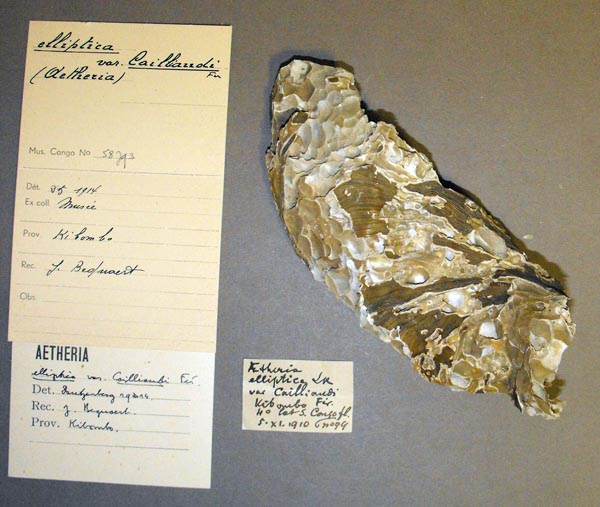 elliptica
var. Caillaudi
(Aetheria) Fér
Mus. Congo No 58793
Dét. 1914
Ex coll. Musée
Prov. Kibombo
Rec. J. Bequaert
Obs.
AETHERIA
elliptica var. Cailliaudi Fér.
Det. Dautzenberg
Rec. J. Bequaert.
Prov. Kibombo.
Ætheria
elliptica Lk
var Cailliaudi
Kibombo Fér.
4° lat S. Congo fl.
5.XI.1910